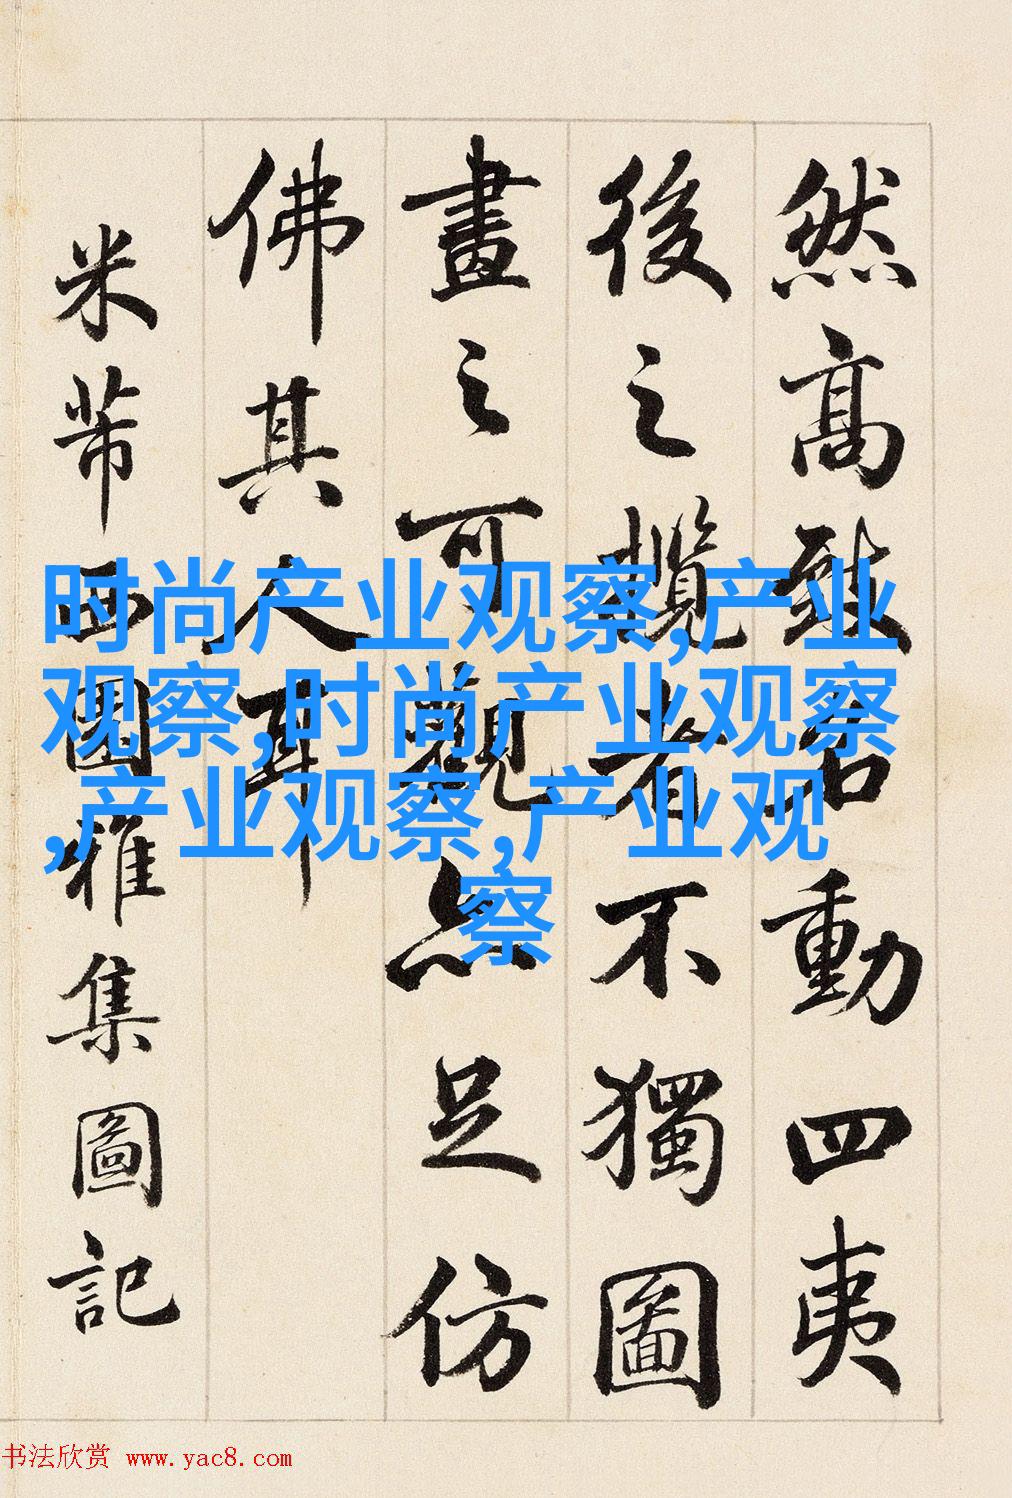 然高致名動四夷
後之攬者不獨圖
畫之可觀亦足仿
佛其人耳
米芾西園雅集圖記
时尚产业观察,产业
观察,时尚产业观察
,产业观察,产业观
察
书法欣赏 www.yac8.com